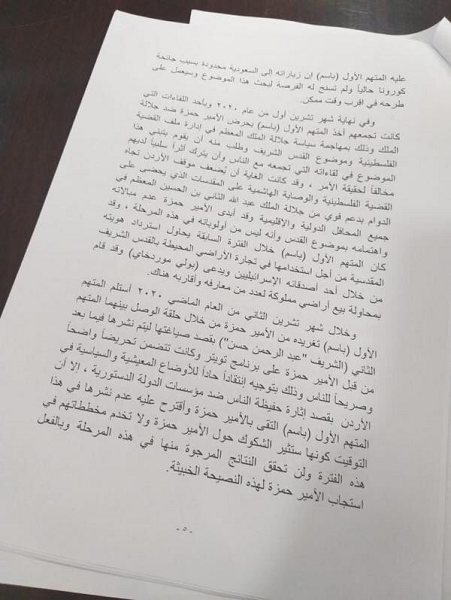 عليه المتهم الأول (باسم) إن زياراته إلى السعودية محدودة بسبب جائحة
كورونا حالياً ولم تسنح له الفرصة لبحث هذا الموضوع وسيعمل على
طرحه في اقرب وقت ممكن.
وفي نهاية شهر تشرين أول من عام ٢٠٢٠ وبأحد اللقاءات التي
كانت تجمعهم أخذ المتهم الأول (باسم) يحرض الأمير حمزة ضد جلالة
الملك وذلك بمهاجمة سياسة جلالة الملك المعظم في إدارة ملف القضية
الفلسطينية وموضوع القدس الشريف وطلب منه أن يقوم بتبني هذا
الموضوع في لقاءاته التي تجمعه مع الناس وأن يترك أثراً سلبياً لديهم
مخالفاً لحقيقة الأمر ، وقد كانت الغاية أن يُضعف موقف الأردن تجاه
القضية الفلسطينية والوصاية الهاشمية على المقدسات الذي يحضى على
الدوام بدعم قوي من جلالة الملك عبد الله الثاني بن الحسين المعظم في
جميع المحافل الدولية والاقليمية وقد أبدى الأمير حمزة عدم مبالاته
واهتمامه بموضوع القدس وأنه ليس من أولوياته في هذه المرحلة ، وقد
كان المتهم الأول (باسم) خلال الفترة السابقة يحاول استرداد هويته
المقدسية من أجل استخدامها في تجارة الأراضي المحيطة بالقدس الشريف
من خلال أحد أصدقائه الإسرائيليين ويدعى (بولي موردخاي) وقد قام
بمحاولة بيع أراضي مملوكة لعدد من معارفه وأقاربه هناك.
وخلال شهر تشرين الثاني من العام الماضي ٢٠٢٠ أستلم المتهم
الأول (باسم) تغريده من الأمير حمزة من خلال حلقة الوصل بينهما المتهم
الثاني (الشريف "عبد الرحمن حسن") بقصد صياغتها ليتم نشرها فيما بعد
من قبل الأمير حمزة على برنامج تويتر وكانت تتضمن تحريضاً واضحاً
وصريحاً للناس وذلك بتوجيه إنتقاداً حاداً للأوضاع المعيشية والسياسية في
الأردن بقصد إثارة حفيظة الناس ضد مؤسسات الدولة الدستورية ، إلا أن
المتهم الأول (باسم) التقى بالأمير حمزة وأقترح عليه عدم نشرها في هذا
التوقيت كونها ستثير الشكوك حول الأمير حمزة ولا تخدم مخططاتهم في
هذه الفترة ولن تحقق النتائج المرجوة منها في هذه المرحلة وبالفعل
استجاب الأمير حمزة لهذه النصيحة الخبيثة.
- ٥ -